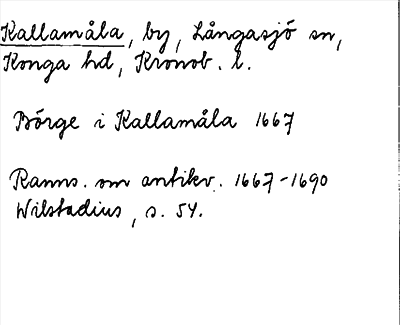 Kallamåla, by, Långasjö sn,
Konga hd, Kronob. l.
Börge i Kallamåla 1667
Ranns. om antikv. 1667-1690
Wilstadius, s. 54.